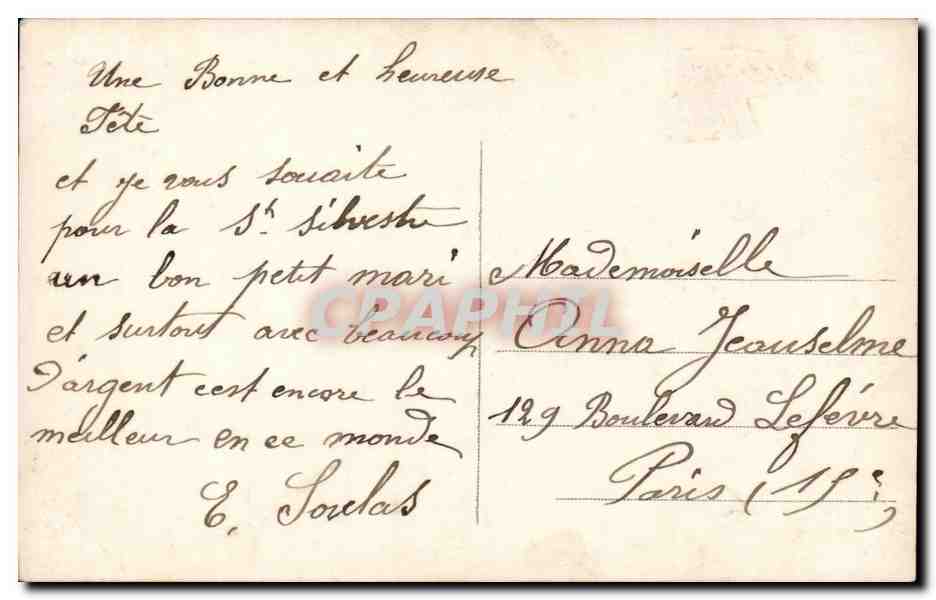 Une Bonne et heureuse
Fête
et je vous souaite
pour la St. Silvestre
un bon petit mari
et surtout avec beaucoup
d'argent cest encore le
meilleur en ce monde
E. Souclas
Mademoiselle
Anna Jeauselme
129 Boulevard Lefévre
Paris (15e)
CPAPHIL